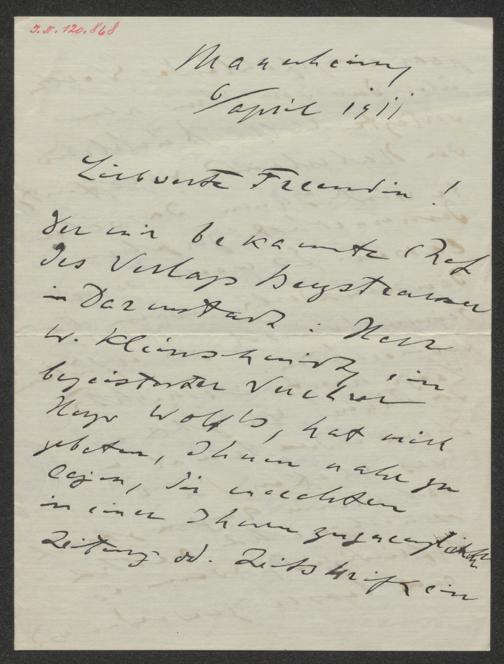 J.N. 120.868
Mannheim,
6/April 1911
Liebwerte Freundin!
Der mir bekannte Chef
des Verlags Bergstraesser
in Darmstadt: Herr
W. Kleinschmidt, ein
begeisterter Verehrer
Hugo Wolf's, hat mich
gebeten, Ihnen nahe zu
legen, Sie moechten
in einer Ihnen zugaenglichen
Zeitung od. Zeitschrift ein